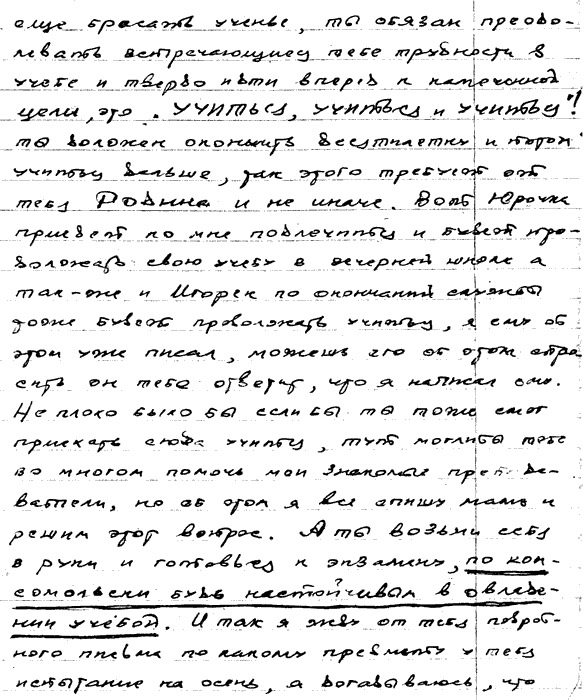 еще бросать ученье, ты обязан преодо-
левать встречающиеся тебе трудности в
учебе и твердо идти вперед к намеченной
цели, это. Учиться, учиться и учиться"!
ты должен окончить десятилетку и потом
учиться дальше, так этого требует от
тебя Родина и не иначе. Вот Юрочка
приедет ко мне подлечиться и будет про-
должать свою учебу в вечерней школе а
так-же и Игорек по окончании службы
тоже будет продолжать учиться, я ему об
этом уже писал, можешь его об этом спро
сить он тебе ответит, что я написал ему.
Не плохо было бы если бы ты тоже смог
приехать сюда учиться, тут могли бы тебе
во многом помочь мои знакомые препода-
ватели, но об этом я все спишу маме и
решим этот вопрос. А ты возьми себя
в руки и готовься к экзамену, по ком-
сомольски будь настойчивым в овладе-
нии учёбой. И так я жду от тебя подроб-
ного письма по какому предмету у тебя
испытание на осень, я догадываюсь, что